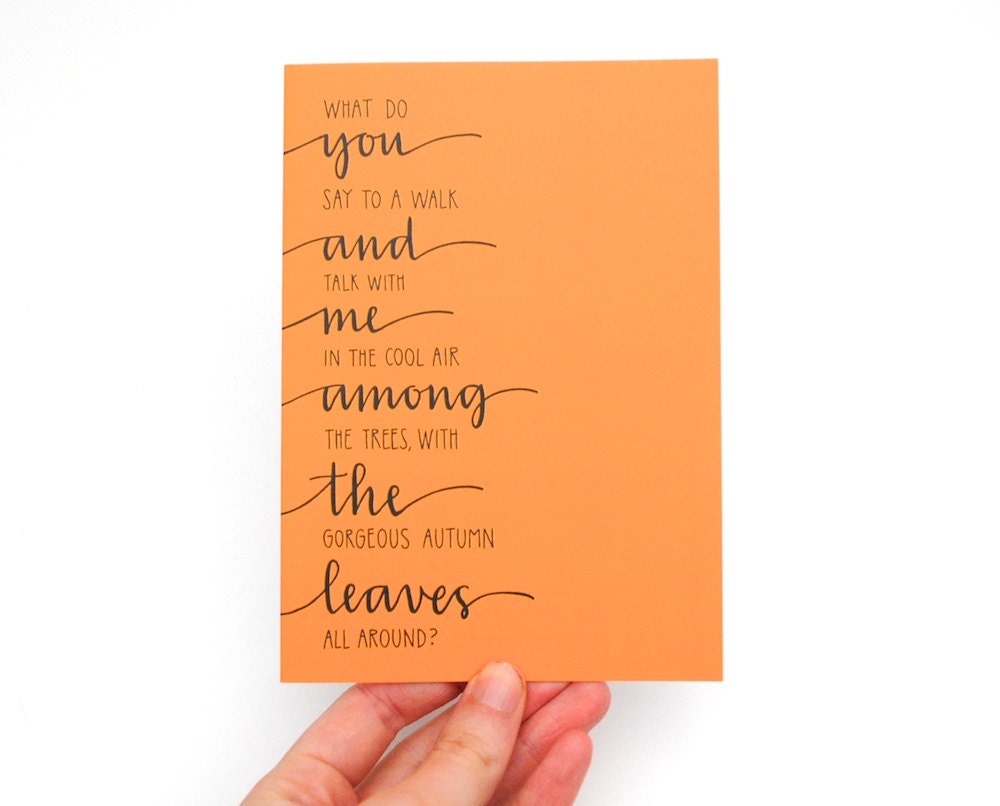 WHAT DO
you
SAY TO A WALK
and
TALK WITH
me
IN THE COOL AIR
among
THE TREES, WITH
the
GORGEOUS AUTUMN
leaves
ALL AROUND?